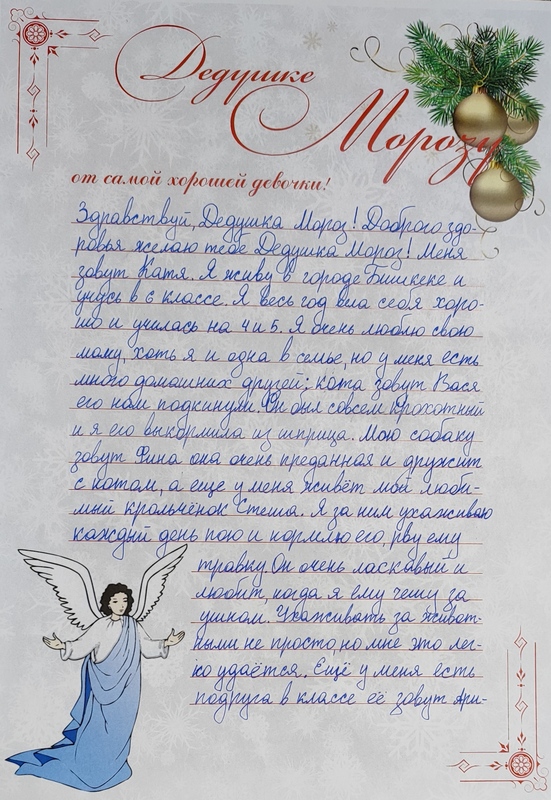 Дедушке
Морозу
от самой хорошей девочки!
Здравствуй, Дедушка Мороз! Доброго здо-
ровья желаю тебе Дедушка Мороз! Меня
зовут Катя. Я живу в городе Бишкеке и
учусь в 6 классе. Я весь год вела себя хоро-
шо и училась на 4 и 5. Я очень люблю свою
маму, хоть я и одна в семье, но у меня есть
много домашних друзей: кота зовут Вася
его нам подкинули. Он был совсем крохотный
и я его выкормила из шприца. Мою собаку
зовут Фина она очень преданная и дружит
с котом, а еще у меня живёт мой люби-
мый крольчёнок Стеша. Я за ним ухаживаю
каждый день пою и кормлю его, рву ему
травку. Он очень ласковый и
любит, когда я ему чешу за
ушком. Ухаживать за живот-
ными не просто, но мне это лег-
ко удаётся. Ещё у меня есть
подруга в классе её зовут Ари-